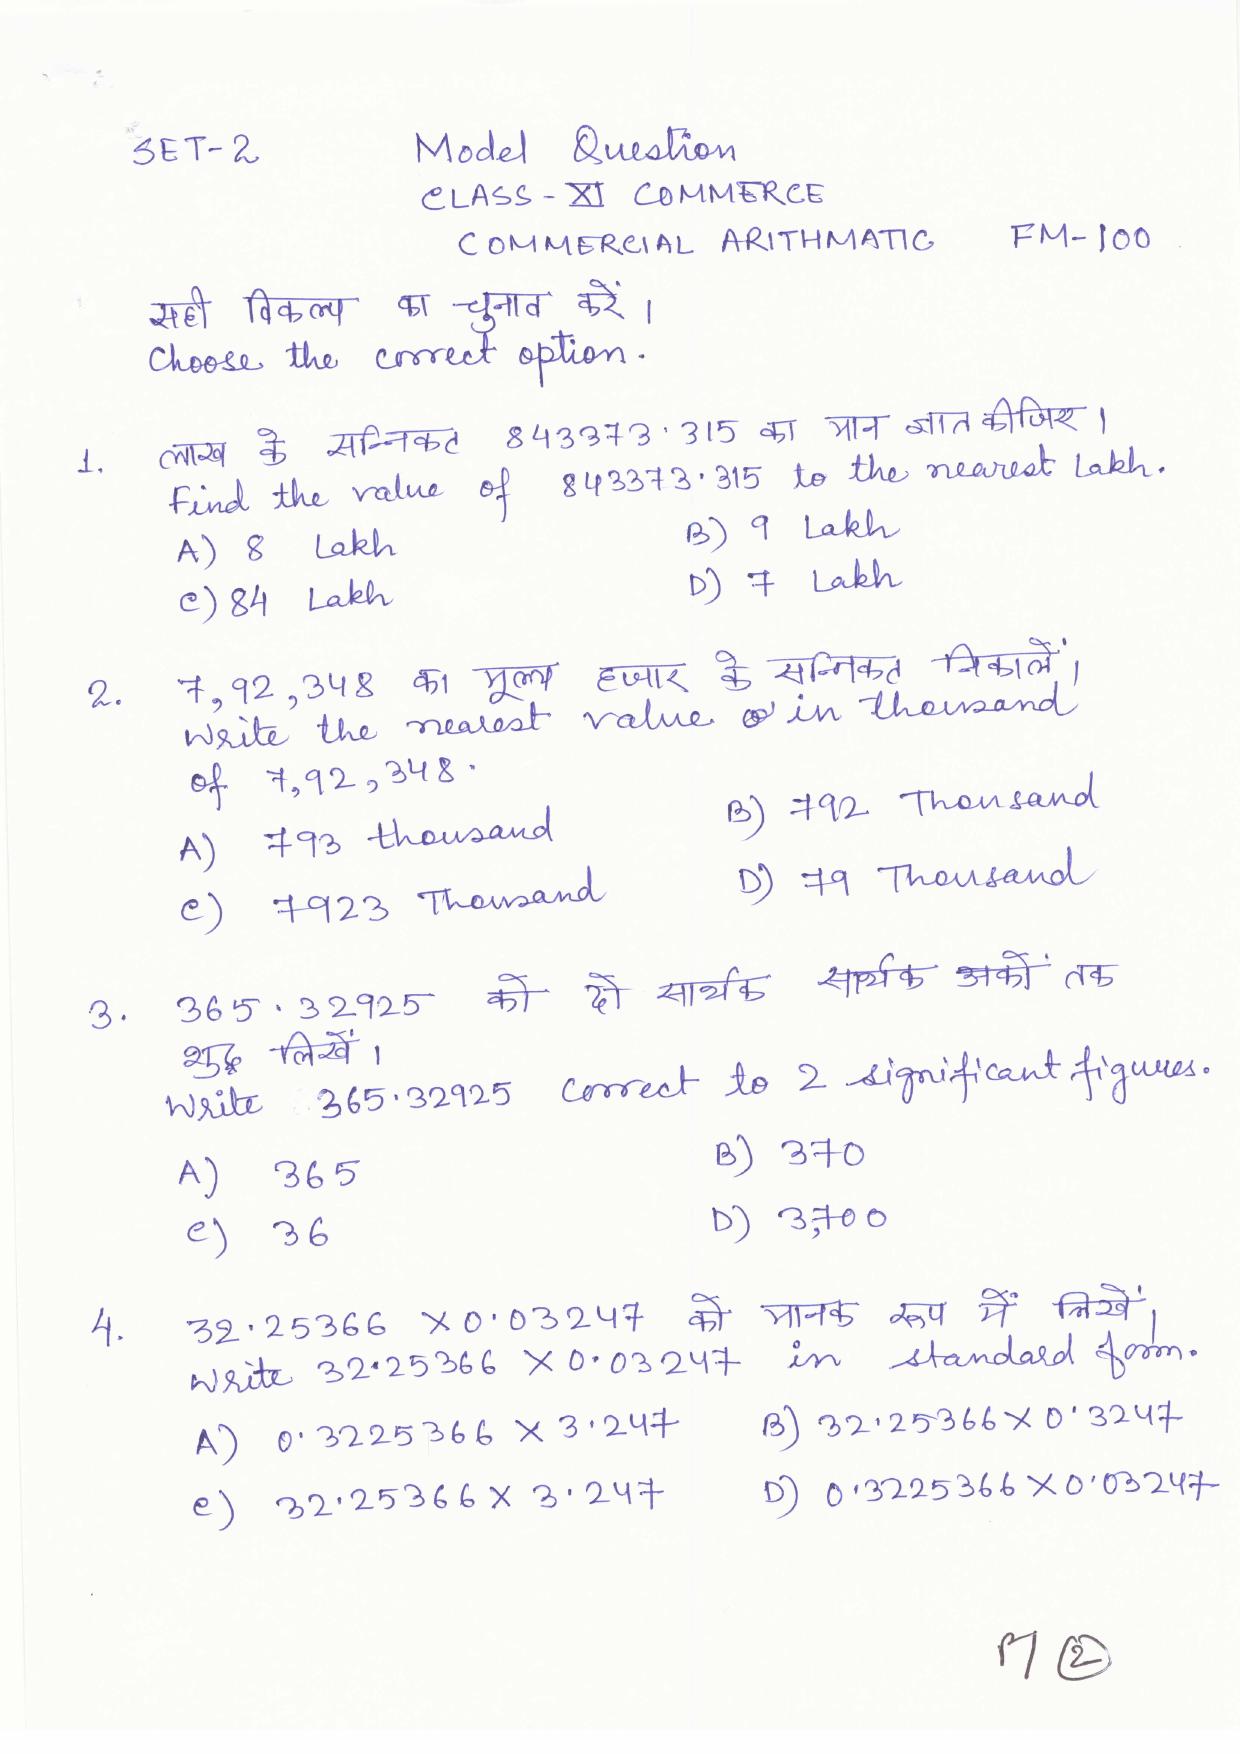 SET-2 Model Question
CLASS - XI COMMERCE
COMMERCIAL ARITHMATIC FM-100
सही विकल्प का चुनाव करें ।
Choose the correct option.
1. लाख के सन्निकट 843373.315 का मान ज्ञात कीजिए ।
Find the value of 843373.315 to the nearest Lakh.
A) 8 Lakh B) 9 Lakh
C) 84 Lakh D) 7 Lakh
2. 7,92,348 का मूल्य हजार के सन्निकट निकालें ।
Write the nearest value in thousand
of 7,92,348.
A) 793 thousand B) 792 Thousand
C) 7923 Thousand D) 79 Thousand
3. 365.32925 को दो सार्थक सार्थक अकों तक
शुद्ध लिखें ।
Write 365.32925 correct to 2 significant figures.
A) 365 B) 370
C) 36 D) 3,700
4. 32.25366 X 0.03247 को मानक रूप में लिखें ।
Write 32.25366 X 0.03247 in standard form.
A) 0.3225366 X 3.247 B) 32.25366 X 0.3247
C) 32.25366 X 3.247 D) 0.3225366 X 0.03247
2